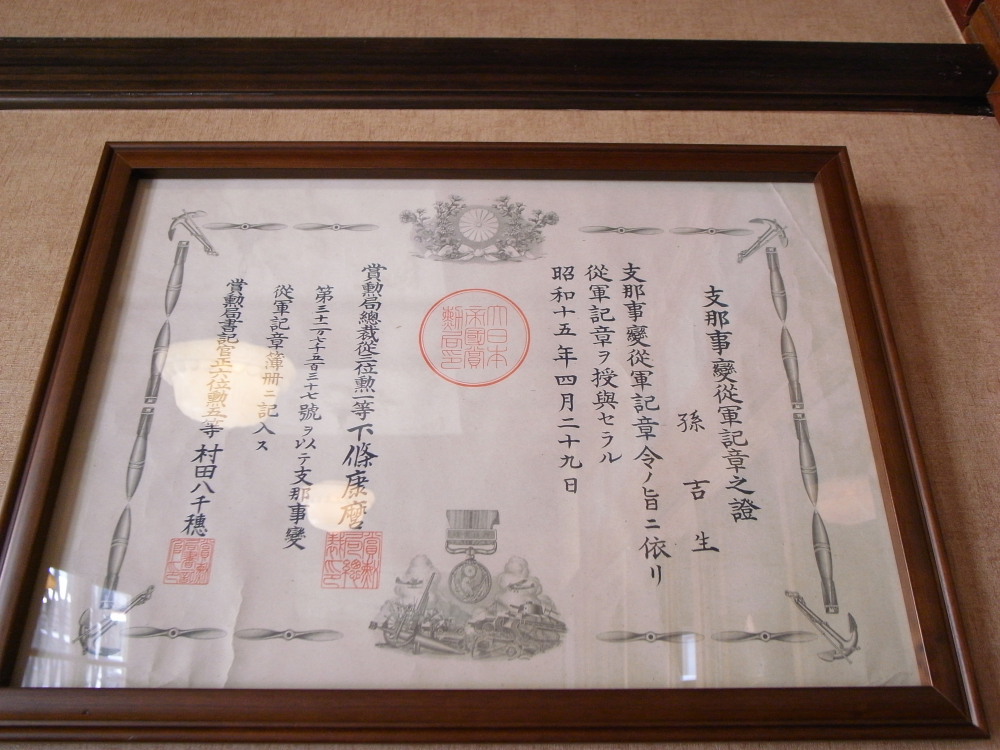 支那事變從軍記章之證
孫吉生
支那事變從軍記章令ノ旨ニ依リ
從軍記章ヲ授與セラル
昭和十五年四月二十九日
大日本
帝國賞
勲局印
賞勲局總裁從三位勲一等下條康麿
第三十二万七千五百三十七號ヲ以テ支那事變
從軍記章簿册ニ記入ス
賞勲局書記官正六位勲五等村田八千穗